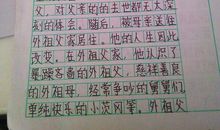 父，对父爱的的主世都无太深
刻的体会。随后，被母亲送往
外祖父家居住。他的人生因此
改变，在外祖父家，他认识了
暴躁吝啬的外祖父，慈祥善良
的外祖母，经常争吵的舅舅们，
单纯快乐的小茨冈等。外祖父